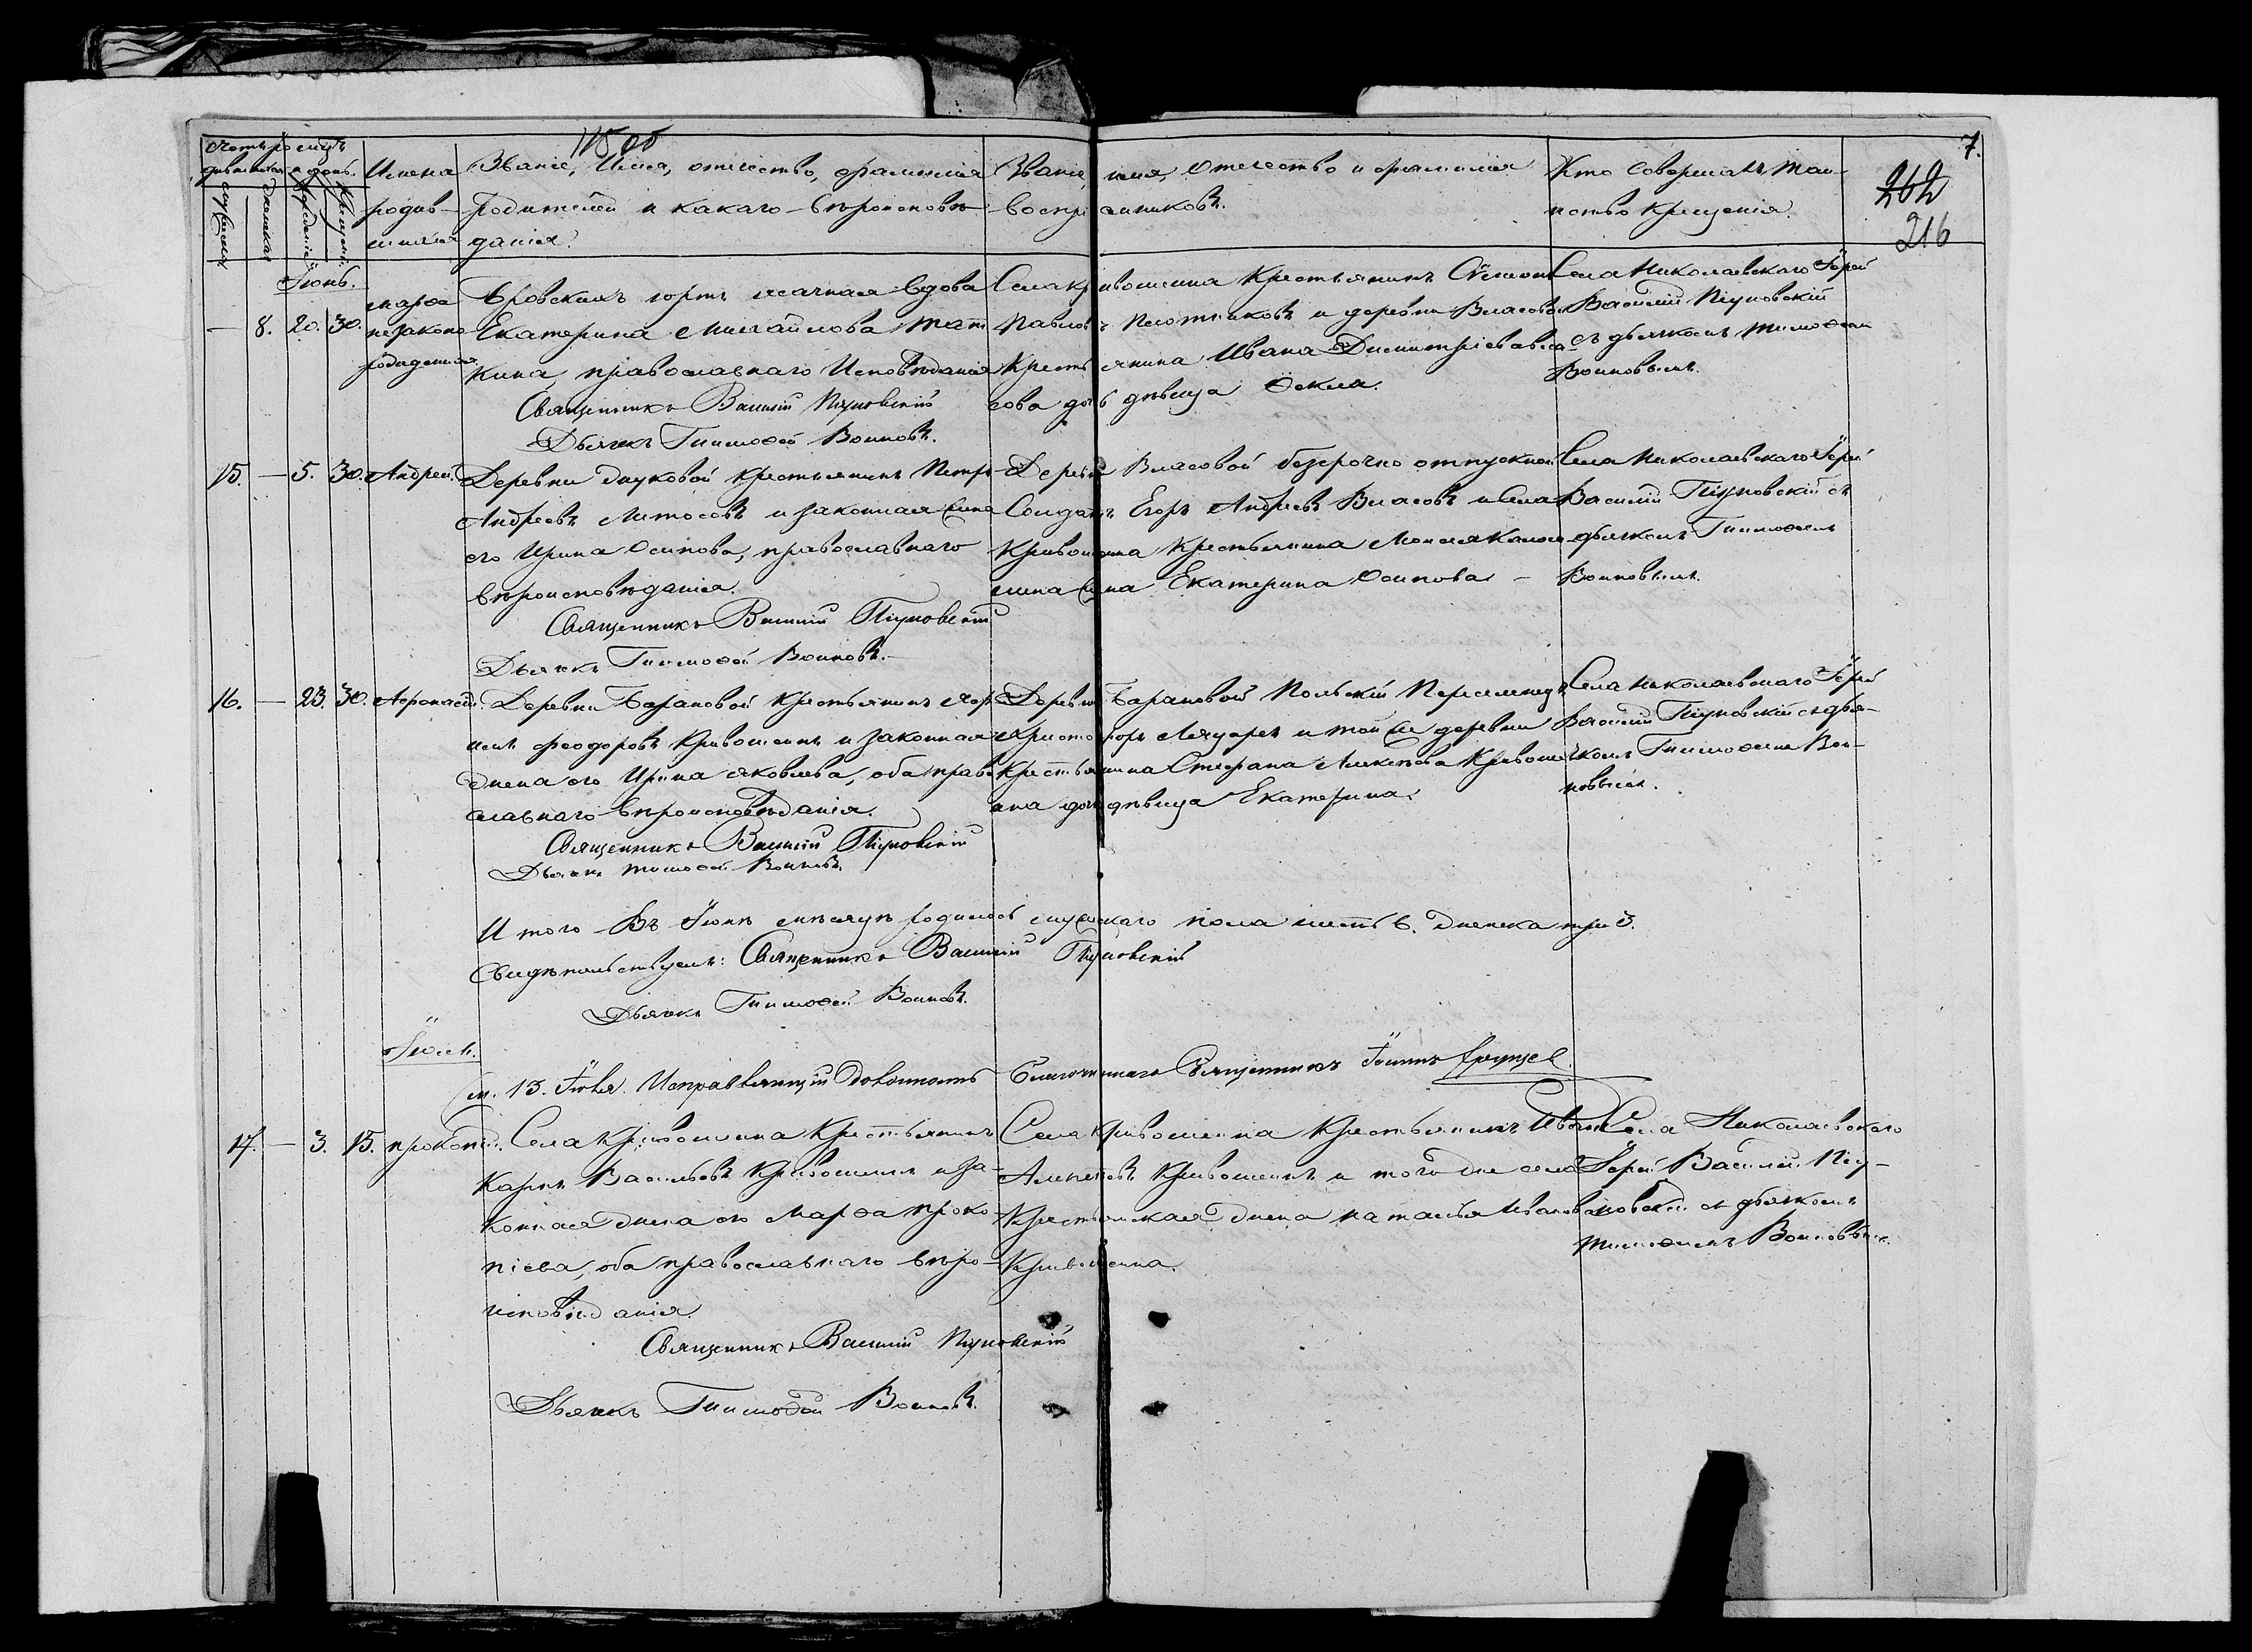 7.
262
216
Счетъ ро
дившихся
Мѣсяцъ
и день.
мужеска
женска
рожденія
крещенія
Имена
родив-
шихся
Званіе, Имя, отчество, фамилія
Родителей и какаго вѣроисповѣ-
данія.
Званіе, имя, Отчество и фамилія
воспріемниковъ.
Кто совершалъ таи-
нство крещенія.
Іюнь.
— 8. 20. 30.
марѳа
незаконо
рожденная
юртъ ясачная вдова
Екатерина Михайлова
кина, православнаго Исповѣданія
Священникъ Василій Піуновскій
Дьячекъ Тимоѳей Воиновъ.
Села Кривошеина Крестьянинъ Сѵмеонъ
Павловъ Плотниковъ и деревни Власовой
Крестьянина Ивана Димитріева Вла-
сова дочь дѣвица Ѳекла.
Села Николаевскаго Іерей
Василій Піуновскій
съ дьячкомъ Тимоѳеемъ
Воиновымъ.
15. — 5. 30. Андрей.
Деревни Крестьянинъ Петръ
Андреевъ и законная жена
его Ирина Осипова, православнаго
вѣроисповѣданія.
Священникъ Василій Піуновскій
Дьячекъ Тимоѳей Воиновъ.
Деревни Власовой безсрочно отпускной
Солдатъ Егоръ Андреевъ Власовъ и Села
Кривошеина Крестьянина
жена Екатерина Осипова —
Села Николаевскаго Іерей
Василій Піуновскій съ
дьячкомъ Тимоѳеемъ
Воиновымъ.
16. — 23. 30. Аѳонасій.
Деревни Барановой Крестьянинъ
Ѳеодоровъ Кривошеинъ и законная
жена его Ирина Яковлева, оба право
славнаго вѣроисповѣданія.
Священникъ Василій Піуновскій
Дьячекъ Тимоѳей Воиновъ.
Деревни Барановой Польскій Переселенецъ
Христофоръ и той же деревни
Крестьянина Стефана Алексѣева Кривоше-
ина дочь дѣвица Екатерина.
Села Николаевскаго Іерей
Василій Піуновскій съ дья-
чкомъ Тимоѳеемъ Вои-
новымъ.
Итого въ Іюнѣ мѣсяцѣ родилось мужескаго пола шесть 6. женска три 3.
Свидѣтельствуемъ: Священникъ Василій Піуновскій
Дьячекъ Тимоѳей Воиновъ.
Іюль.
13. Іюля. Исправляющій должность Благочиннаго Священникъ Іоаннъ
17. — 3. 15. Прокопій.
Села Кривошеина Крестьянинъ
Карпъ Васильевъ Кривошеинъ и за-
конная жена его Марѳа Проко-
піева, оба православнаго вѣро-
исповѣданія.
Священникъ Василій Піуновскій
Дьячекъ Тимоѳей Воиновъ.
Села Кривошеина Крестьянинъ Иванъ
Алексѣевъ Кривошеинъ и того же села
Крестьянская жена Наталья Иванова
Кривошеина.
Села Николаевскаго
Іерей Василій Піу-
новскій съ дьячкомъ
Тимоѳеемъ Воиновымъ.